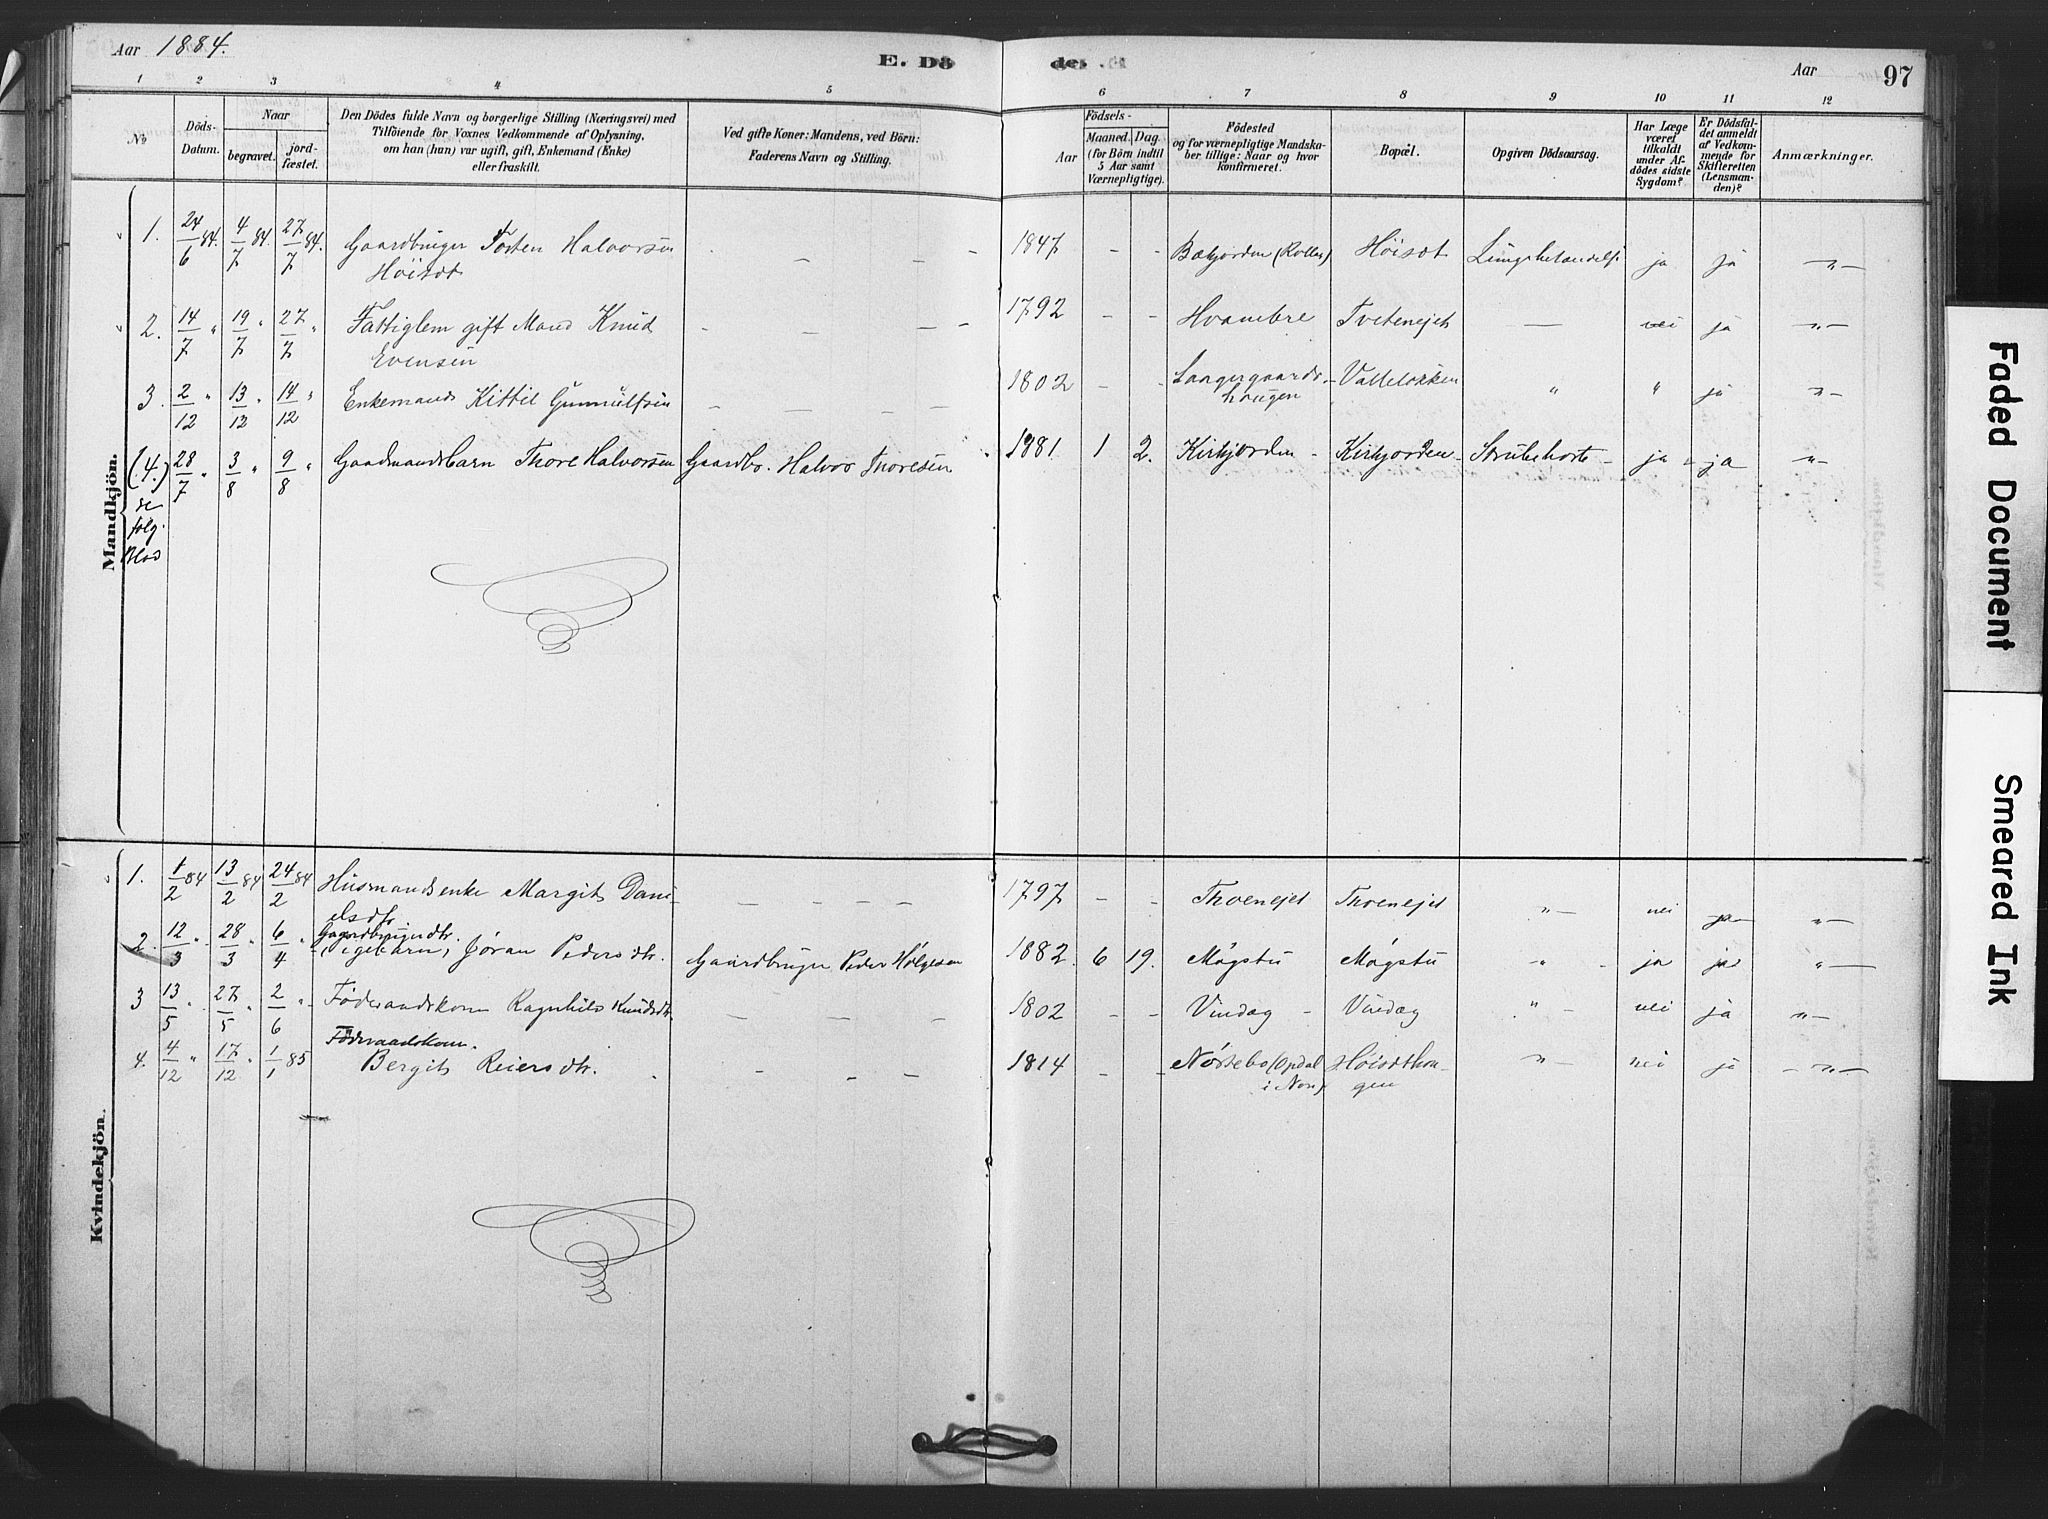 Aar 1884.
E. Dö
der.
Aar
97
1 2 3 4 5 6 7 8 9 10 11 12
No
Döds-
Datum.
Naar
begravet.
jord-
fæstet.
Den Dödes fulde Navn og borgerlige Stilling (Næringsvei) med
Tilföiende for Voxnes Vedkommende af Oplysning,
om han (hun) var ugift, gift, Enkemand (Enke)
eller fraskilt.
Ved gifte Koner: Mandens, ved Börn:
Faderens Navn og Stilling.
Födsels-
Aar
Maaned. Dag.
(for Börn indtil
5 Aar samt
Værnepligtige).
Födested
og for værnepligtige Mandska-
ber tillige: Naar og hvor
konfirmeret.
Bopæl.
Opgiven Dödsaarsag.
Har Læge
været
tilkaldt
under Af-
dödes sidste
Sygdom?
Er Dödsfal-
det anmeldt
af Vedkom-
mende for
Skifteretten
(Lensman-
den)?
Anmærkninger.
Mandkjön.
1. 24/6 84. 4/7 84. 27/7 84. Gaardbruger Tosten Halvorsen - - - 1847 - - Bækjorden (Rollag) Höisdt ja ja -"-
Höisdt
2. 14/7 " 19/7 " 27/7 " Fattiglem gift Mand Knud - - - - 1792 - - Tvetenejet — nei ja -"-
Evensen
3. 2/12 " 13/12 " 14/12 " Enkemand Kittil Gunnulfsen - - - 1802 - - Langergaards- " " ja -"-
haugen
(4.) 28/7 " 3/8 " 9/8 " Gaadmandsbarn Thore Halvorsen Gaardbr. Halvor Thoresen 1881. 1 2. Kirkjorden - Kirkjorden - Strubehoste - ja ja -"-
se
følg.
Blad
Kvindekjön.
1. 1/2 84 13/2 84 24/2 84 Husmandsenke Margit Dani- - - - - 1797 - - Thoenejet Thoenejet -"- nei ja -"-
elsdtr
Gaardbrugerdtr.
2. 12/3 " 28/3 " 6/4 " (Pigebarn) Jøran Pedersdtr. Gaardbruger Peder Helgesen 1882. 6 19. Mogstu Mogstu " ja ja -"-
3 13/5 " 27/5 " 2/6 " Føderaadskone Ragnhild Knudsdtr. - - - 1802 - - Vindæg - Vindæg " - nei ja -"-
Föderaadskone.
4. 4/12 " 17/12 " 1/1 85 Bergit Reiersdtr. - - - - 1814 - - Nørstebø (Opdal Höisdthau- -"- nei ja -"-
i Num) gen
Faded Document
Smeared Ink